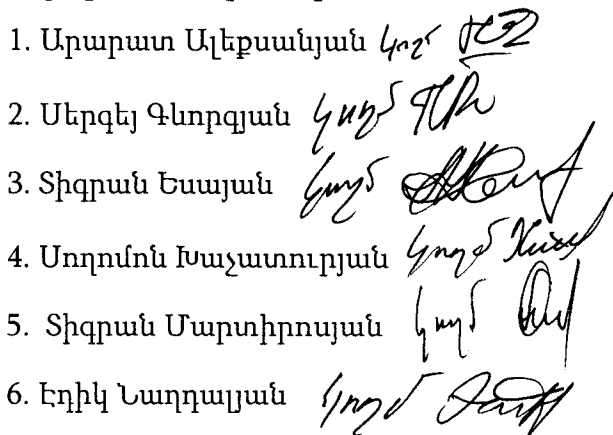 1. Արարատ Ալեքսանյան կողմ
2. Սերգեյ Գևորգյան կողմ
3. Տիգրան Եսայան կողմ
4. Սողոմոն Խաչատուրյան կողմ
5. Տիգրան Մարտիրոսյան կողմ
6. Էդիկ Նաղդալյան կողմ